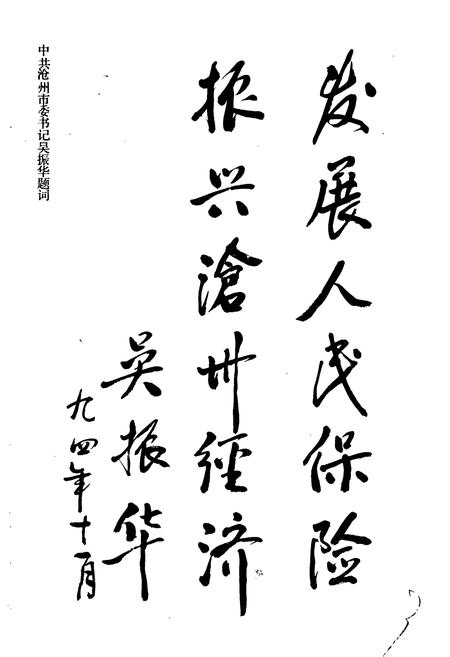 发展人民保险
振兴滄州經济
吴振华
九四年十一月
中共沧州市委书记吴振华题词